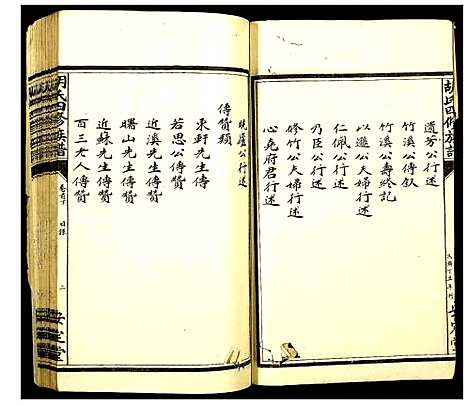 胡氏四修族譜
遺芳公行述
竹溪公傳敘
竹溪公壽終記
以邀公夫婦行述
仁佩公行述
乃臣公行述
修竹公夫婦行述
心堯府君行述
安定堂
晚廬公行述
傳贊類
東軒先生傳
若思公傳贊
近溪先生傳贊
曙山先生傳贊
近蘇先生傳贊
百三老人傳贊
胡氏四修族譜
卷首下 目錄 二
安定堂